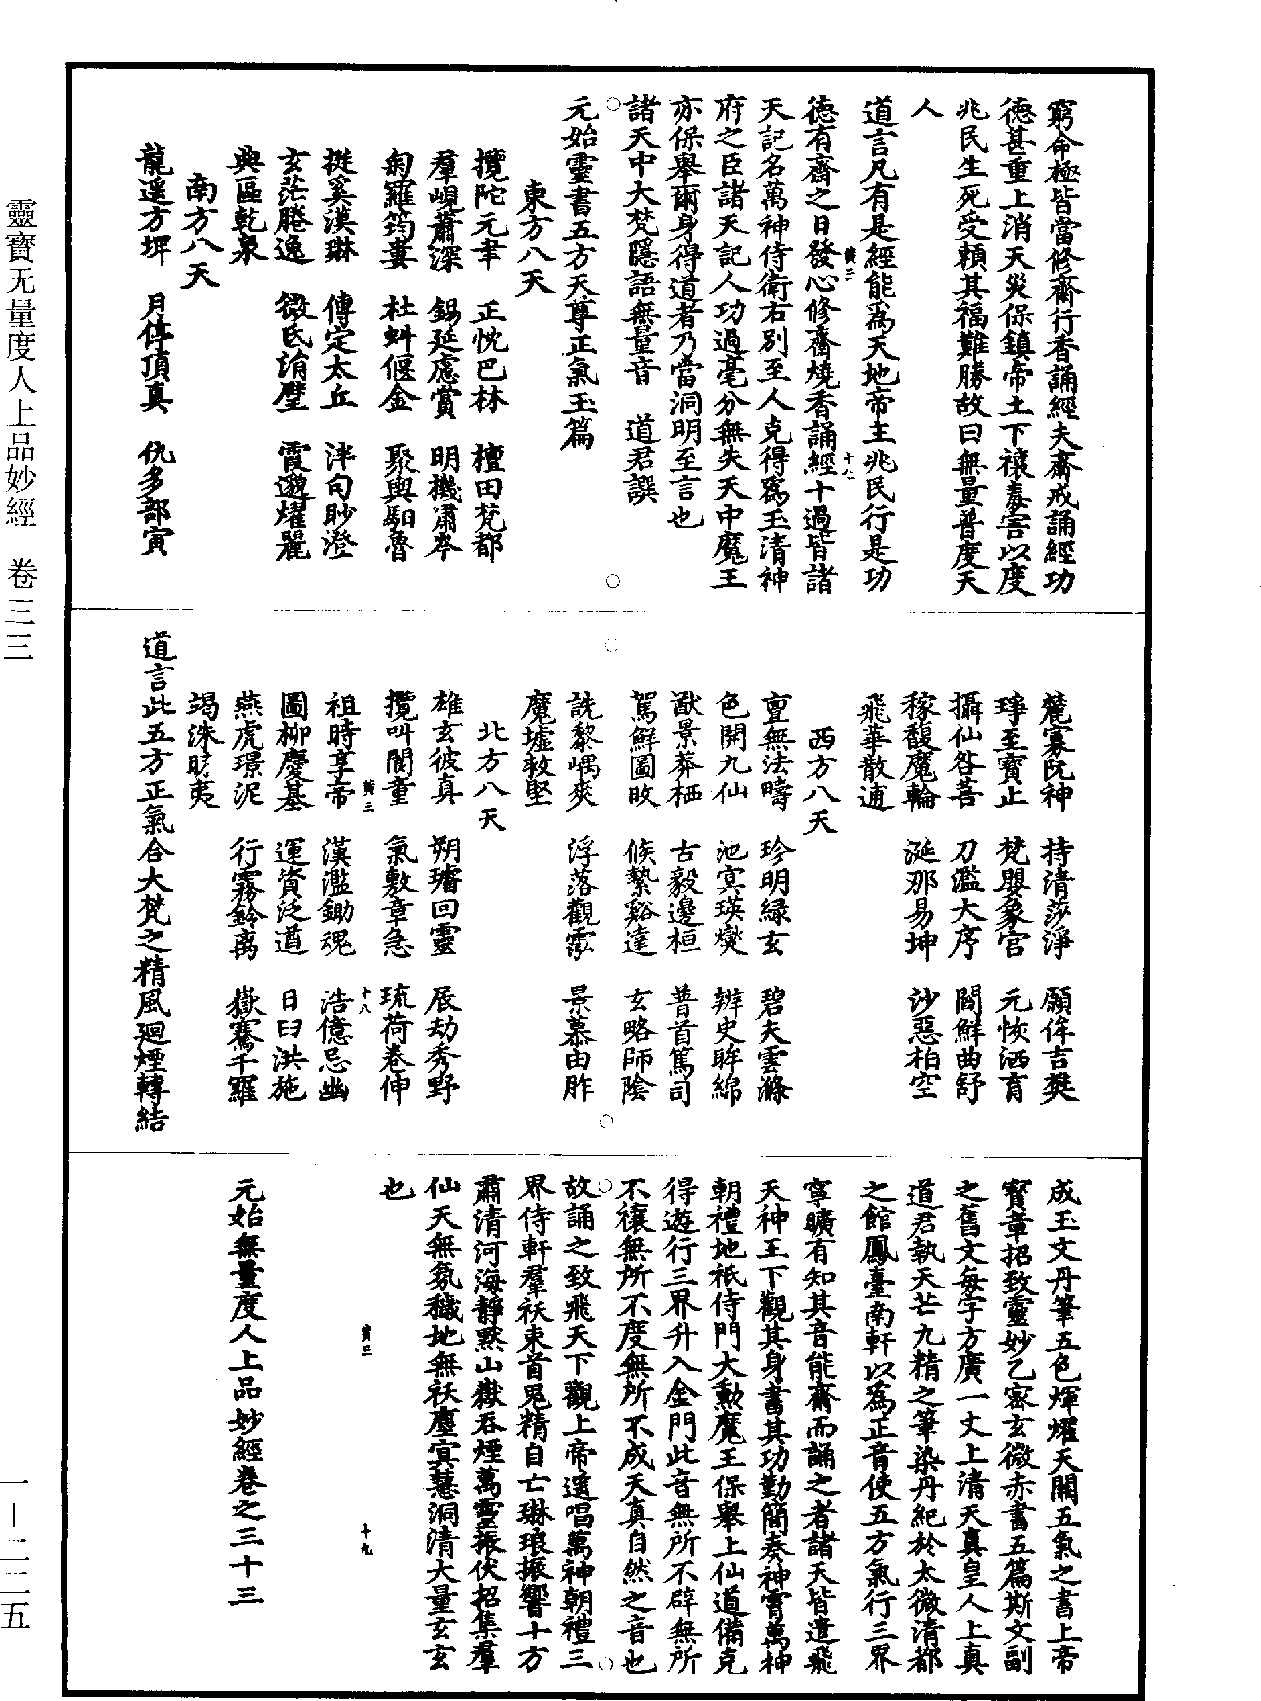 窮命極皆當修齋行香誦經夫齋戒誦經功
德甚重上消天災保鎮帝土下禳毒害以度
兆民生死受賴其福難勝故曰無量普度天
人
道言凡有是經能爲天地帝主兆民行是功
德有齋之日發心修齋燒香誦經十過皆諸
天記名萬神侍衛右別至人克得爲玉清神
府之臣諸天記人功過毫分無失天中魔王
亦保舉爾身得道者乃當洞明至言也
諸天中大梵隱語無量音　道君譔
元始靈書五方天尊正氣玉篇
東方八天
攬陀元聿　正忱巴林　檀田梵都
羣峴蕭深　錫延慮賞　明機肅岑
匊羅筠婁　杜蚪偃金　聚輿馹魯
挺奚漠琳　傅定太丘　泮句眇澄
玄茫騰逸　微氏淯璧　霞邀燿麗
典區乾泉
南方八天
龍遥方墀　月倳頂真　仇多部寅
麓寡阮神　持清莎淨　願侔吉樊
琤至寶止　梵嬰象宮　元恢洒育
攝仙咎菩　刀濫大序　閻鮮曲舒
稼馥魔輪　涎那易坤　沙惡柏空
飛華散逋
西方八天
亶無法疇　珍明緑玄　碧夫雲滌
色開九仙　池㝠瑛爕　辨史眸綿
猷景莽栖　古毅邊桓　普首篤司
駕鮮圖旼　候縶谿達　玄略師陰
詵黎嵎爽　浮落觀　景慕由胙
魔墟敕堅
北方八天
雄玄彼真　朔璿回靈　辰劫秀野
攬叫閬童　氣敷章急　琉荷卷伸
祖時享帝　漢濫鋤魂　浩億忌幽
圖柳慶基　運資泛道　日曰洪施
燕虎璟泥　行霧鈴离　嶽騫千羅
竭洙盱夷
道言此五方正氣合大梵之精風廻煙轉結
成玉文丹筆五色煇燿天關五氣之書上帝
寶章招致靈妙乙密玄微赤書五篇斯文副
之舊文每字方廣一丈上清天真皇人上真
道君執天芒九精之筆染丹紀於太微清都
之館鳳臺南軒以爲正音使五方氣行三界
寧曠有知其音能齋而誦之者諸天皆遣飛
天神王下觀其身書其功勤簡奏神霄萬神
朝禮地祇侍門大勳魔王保舉上仙道備克
得遊行三界升入金門此音無所不辟無所
不禳無所不度無所不成天真自然之音也
故誦之致飛天下觀上帝遥唱萬神朝禮三
界侍軒羣祅束首鬼精自亡琳琅振響十方
肅清河海靜默山嶽吞煙萬靈振伏招集羣
仙天無氛穢地無祅塵㝠慧洞清大量玄玄
也
元始無量度人上品妙經卷之三十三
靈寶无量度人上品妙經　卷三三
一—二二五